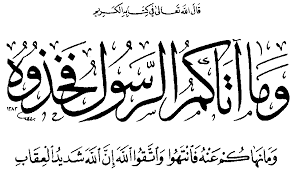 قَالَ اللهُ تَعَالَىٰ فِي كِتَابِهِ الكَرِيمِ
وَمَا آتَاكُمُ الرَّسُولُ فَخُذُوهُ
وَمَا نَهَاكُمْ عَنْهُ فَانْتَهُوا وَاتَّقُوا اللهَ إِنَّ اللهَ شَدِيدُ الْعِقَابِ